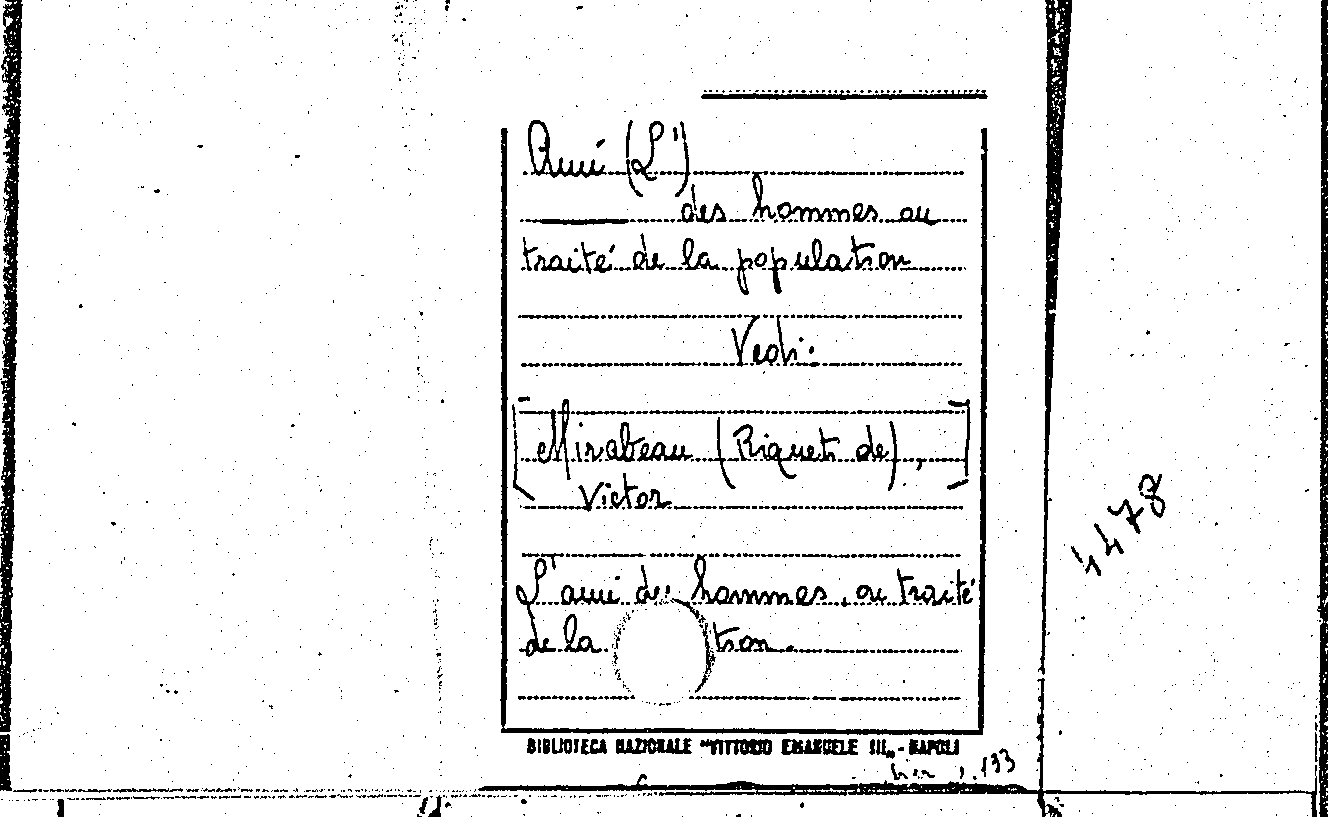 Ami (L')
des hommes ou
traité de la population
Vedi:
[Mirabeau (Riqueti de),]
Victor
L'ami des hommes, ou traité
de la tion.
4478
BIBLIOTECA NAZIONALE "VITTORIO EMANUELE III„ - NAPOLI
133